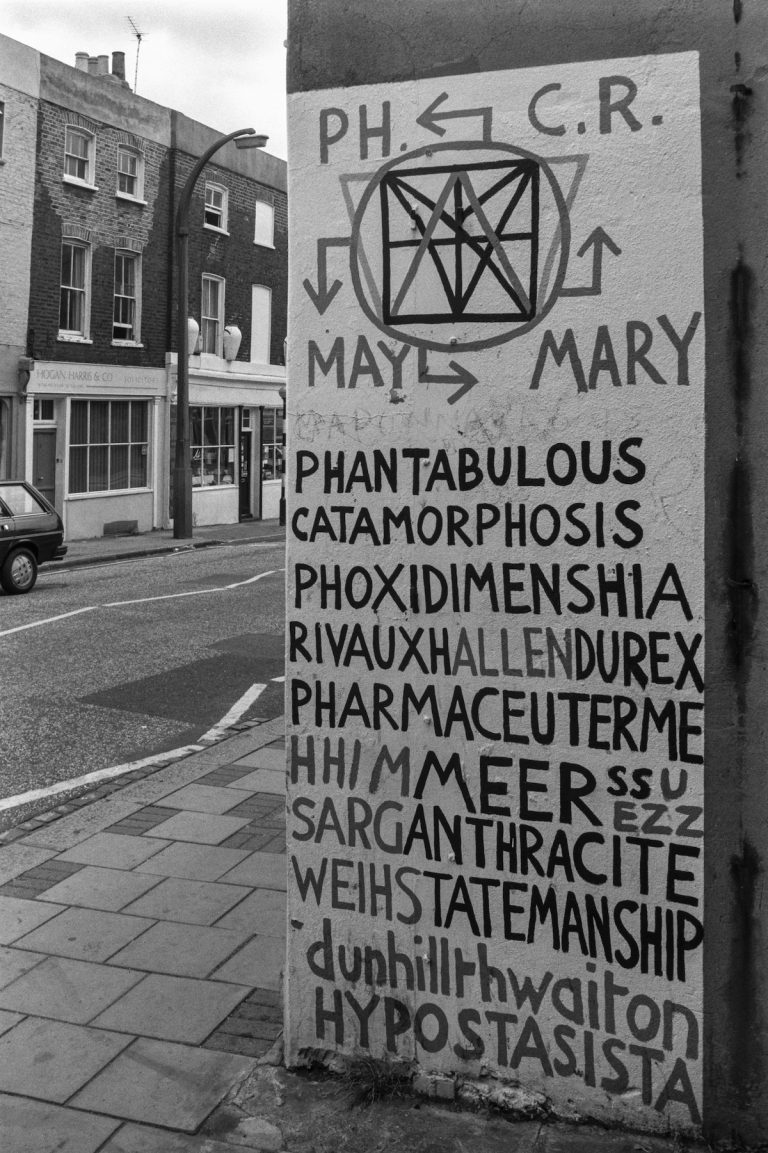 HOGAN HARRIS & CO
PH. C.R.
MAY MARY
PHANTABULOUS
CATAMORPHOSIS
PHOXIDIMENSHIA
RIVAUXHALLENDUREX
PHARMACEUTERME
HHIMMEER SSU
EZZ
SARGANTHRACITE
WEIHSTATEMANSHIP
dunhillrhwaiton
HYPOSTASISTA